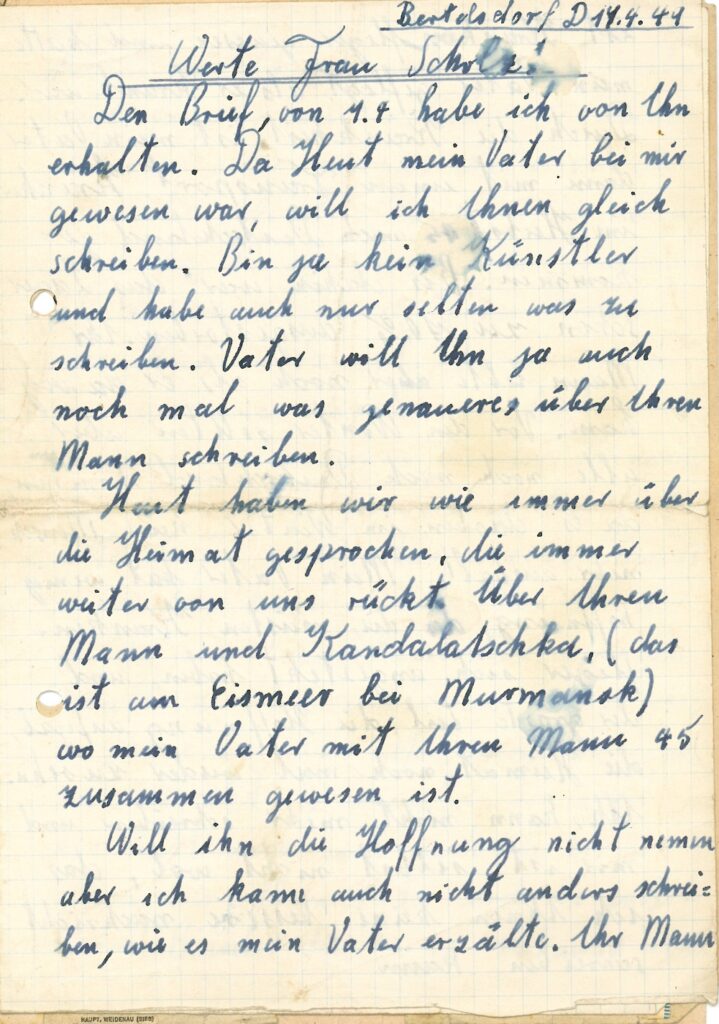 Bertelsdorf, D 14.4.49
Werte Frau Scholz!
Den Brief, von 7.4 habe ich von Ihn
erhalten. Da Heut mein Vater bei mir
gewesen war, will ich Ihnen gleich
schreiben. Bin ja kein Künstler
und habe auch nur selten was zu
schreiben. Vater will Ihn ja auch
noch mal was genaueres über Ihren
Mann schreiben.
Heut haben wir wie immer über
die Heimat gesprochen, die immer
weiter von uns rückt. Über Ihren
Mann und Kandalatschka, (das
ist am Eismeer bei Murmansk)
wo mein Vater mit Ihren Mann 45
zusammen gewesen ist.
Will ihn die Hoffnung nicht nemen
aber ich kann auch nicht anders schrei=
ben, wie es mein Vater erzälte. Ihr Mann
HAUPT, WEIDENAU (SIEG)